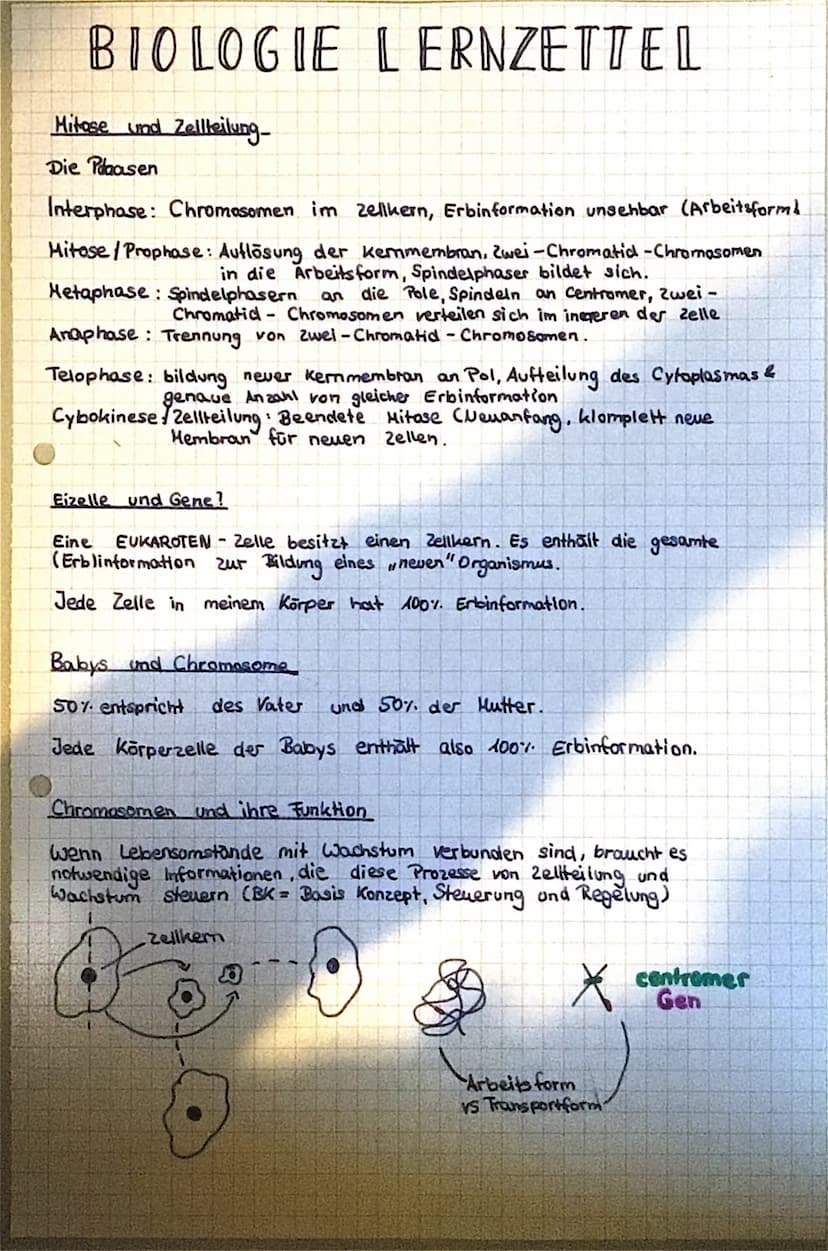 BIOLOGIE LERNZETTEL
Mitose und Zellteilung
Die Phasen
Interphase: Chromosomen im Zellkern, Erbinformation unsehbar (Arbeitsform)
Mitose/Prophase: Auflösung der Kernmembran, Zwei-Chromatid-Chromosomen
in die Arbeitsform, Spindelphaser bildet sich.
Metaphase: Spindelphasern an die Pole, Spindeln an Centromer, Zwei-
Chromatid-Chromosomen verteilen sich im inneren der Zelle
Anaphase: Trennung von Zwei-Chromatid-Chromosomen.
Telophase: bildung neuer Kernmembran an Pol, Aufteilung des Cytoplasmas &
genaue Anzahl von gleicher Erbinformation
Cybokinese/Zellteilung: Beendete Mitose (Neuanfang, klomplett neue
Membran für neuen Zellen.
Eizelle und Gene?
Eine EUKAROTEN-Zelle besitzt einen Zellkern. Es enthält die gesamte
(Erb)information zur Bildung eines „neuen" Organismus.
Jede Zelle in meinem Körper hat 100% Erbinformation.
Babys und Chromosome
50% entspricht des Vater und 50% der Mutter.
Jede Körperzelle der Babys enthält also 100% Erbinformation.
Chromosomen und ihre Funktion
Wenn Lebensomstände mit Wachstum verbunden sind, braucht es
notwendige Informationen, die diese Prozesse von Zellteilung und
Wachstum steuern (BK = Basis Konzept, Steuerung und Regelung)
Zellkern
centromer
Gen
Arbeitsform
vs Transportform